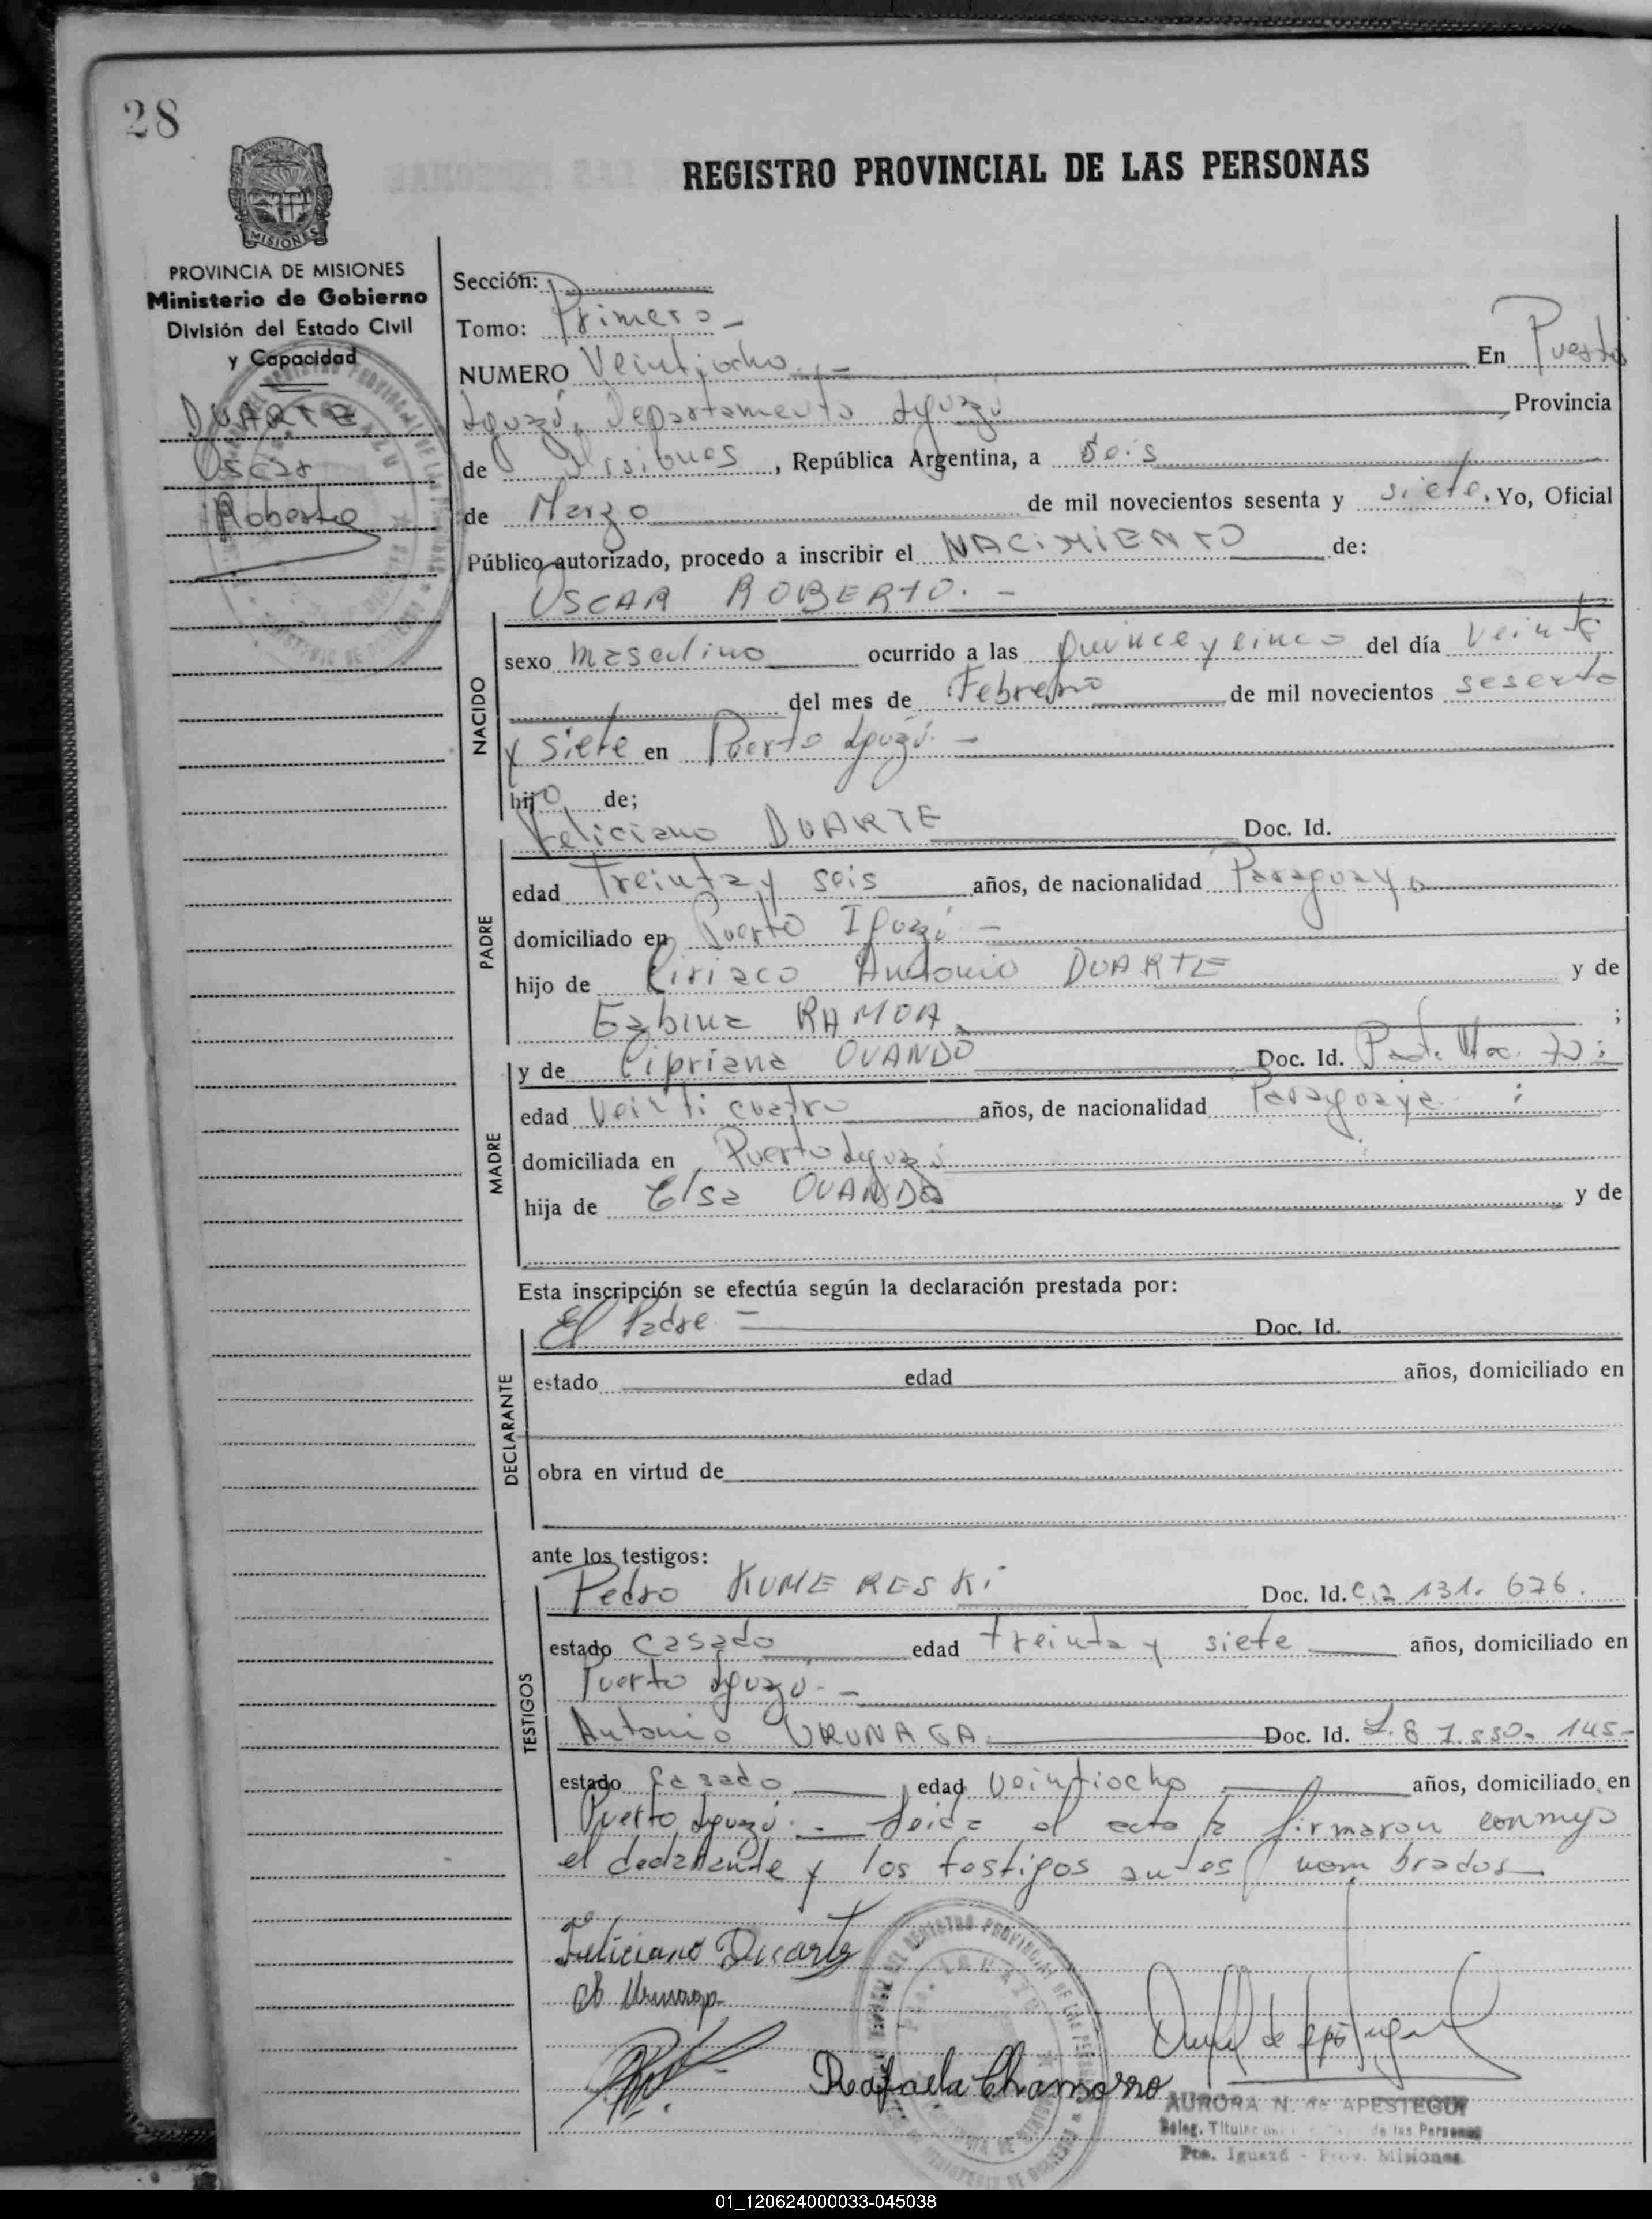 28
REGISTRO PROVINCIAL DE LAS PERSONAS
PROVINCIA DE MISIONES
MISIONES
PROVINCIA DE MISIONES
Ministerio de Gobierno
División del Estado Civil
y Capacidad
DUARTE
Oscar
Roberto
Sección:
Tomo: Primero -
NUMERO Veintiocho.- En Puerto
Iguazú, Departamento Iguazú, Provincia
de Misiones, República Argentina, a Seis
de Marzo de mil novecientos sesenta y siete. Yo, Oficial
Público autorizado, procedo a inscribir el NACIMIENTO de:
OSCAR ROBERTO. -
NACIDO
sexo masculino ocurrido a las quince y cinco del día veinte
del mes de Febrero de mil novecientos sesenta
y siete en Puerto Iguazú. -
hijo de;
PADRE
Feliciano DUARTE Doc. Id.
edad Treinta y seis años, de nacionalidad Paraguayo
domiciliado en Puerto Iguazú -
hijo de Ciriaco Antonio DUARTE y de
RAMOA ;
MADRE
y de Cipriana OVANDO Doc. Id.
edad Veinticuatro años, de nacionalidad Paraguaya
domiciliada en Puerto Iguazú
hija de Elsa OVANDO y de
Esta inscripción se efectúa según la declaración prestada por:
DECLARANTE
El Padre - Doc. Id.
estado edad años, domiciliado en
obra en virtud de
ante los testigos:
TESTIGOS
Pedro KUMERESKI Doc. Id. 131.676.
estado Casado edad treinta y siete años, domiciliado en
Puerto Iguazú. -
Antonio URUNAGA Doc. Id. 145-
estado Casado edad veintiocho años, domiciliado en
Puerto Iguazú. - Leída el acta la firmaron conmigo
el declarante y los testigos antes nombrados
Feliciano Duarte
Rafaela Chamorro
AURORA N. de APESTEGUI
Deleg. Titular de las Personas
Pto. Iguazú - Prov. Misiones
01_120624000033-045038